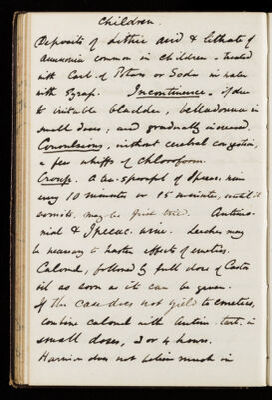 Children.
Deposits of Lithic acid & lithate of
Ammonia common in children - treated
with Carb. of Potass or Soda in water
with Syrup. Incontinence - if due
to irritable bladder, belladonna in
small doses, and gradually increased.
Convulsions, without cerebral congestion,
a few whiffs of Chloroform.
Croup. A tea-spoonful of Ipecac. wine
every 10 minutes or 15 minutes, until it
vomits, may be first tried. Antimo-
nial & Ipecac. wine. Leeches may
be necessary to hasten effects of emetics.
Calomel, followed by full dose of Castor
oil as soon as it can be given.
If the case does not yield to emetics,
combine calomel with Antim. tart. in
small doses, 3 or 4 hours.
Harrison does not believe much in